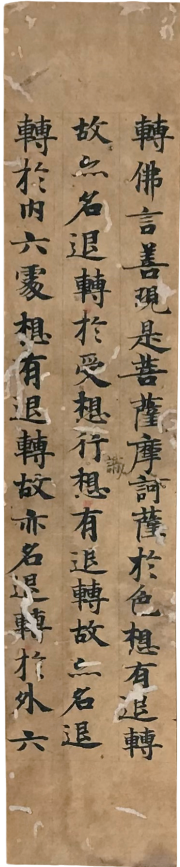 轉佛言善現是菩薩摩訶薩於色想有退轉
故亦名退轉於受想行識想有退轉故亦名退
轉於内六處想有退轉故亦名退轉於外六